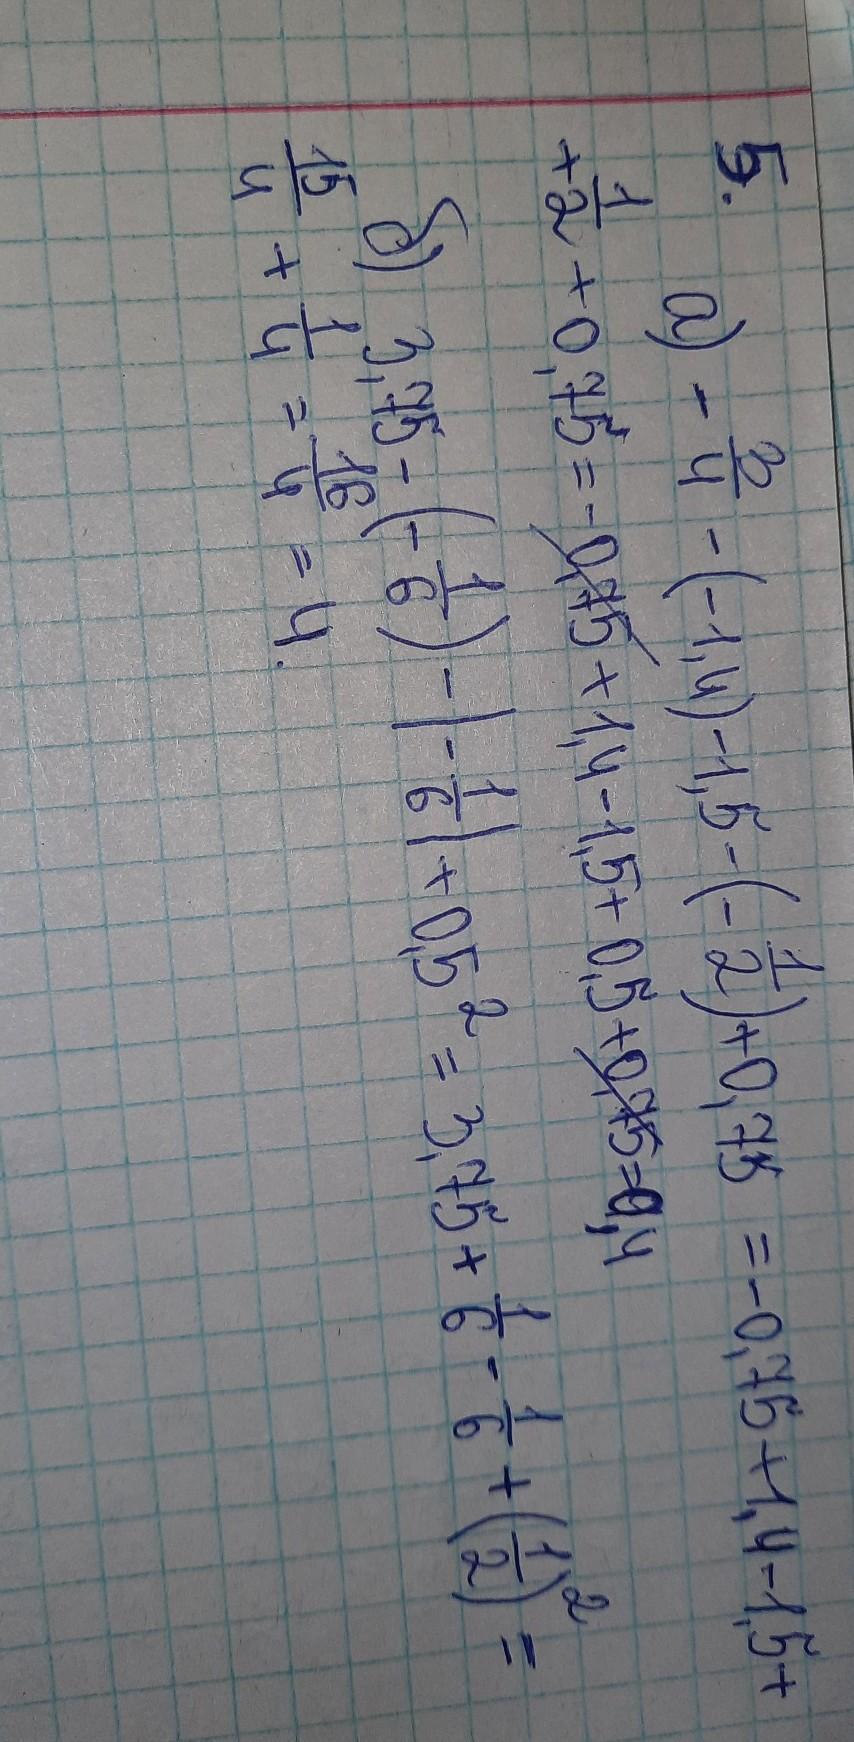 5. а) - 3/4 - (-1,4) - 1,5 - (- 1/2) + 0,75 = -0,75 + 1,4 - 1,5 +
+ 1/2 + 0,75 = - 0,75 + 1,4 - 1,5 + 0,5 + 0,75 = 0,4
б) 3,75 - (- 1/6) - |- 1/6| + 0,5² = 3,75 + 1/6 - 1/6 + (1/2)² =
15/4 + 1/4 = 16/4 = 4.